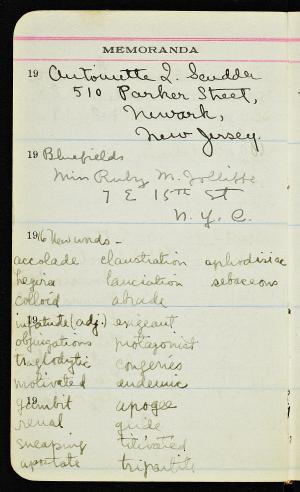 MEMORANDA
19 Antoinette Q. Scudder
510 Parker Street,
Newark,
New Jersey.
19 Bluefields
Miss Ruby M. Jolliffe
7 E 15TH St
N. Y. C.
1916 New words -
accolade claustration aphrodisiac
hegira sebaceous
colloid abrade
19 (adj.) exigeant
objurgations protagonist
troglodytic congeries
motivated endemic
19 gambit apogee
renal guide
sneaping titivated
apetate tripartite